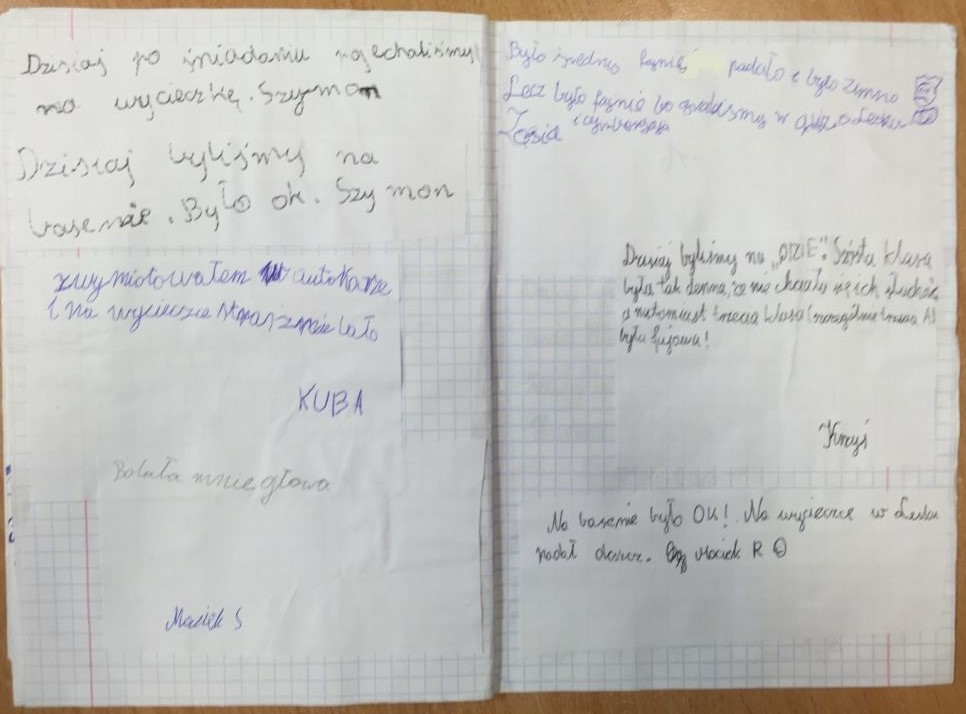 Dzisiaj po śniadaniu pojechaliśmy
na wycieczkę. Szymon
Dzisiaj byliśmy na
basenie. Było ok. Szymon
zwymiotowałem w autokarze
i na wycieczce strasznie lało
KUBA
Bolała mnie głowa
Maciek S
Było średnio fajnie padało i było zimno
Lecz było fajnie bo graliśmy w
Zosia i
Dzisiaj byliśmy na „ORLE". Szósta klasa
była tak denna, że nie chciało się ich słuchać,
a natomiast trzecia klasa (szczególnie trzecia A)
była fajowa!
Krzyś
Na basenie było OK! Na wycieczce w Lesku
padał deszcz. Maciek R